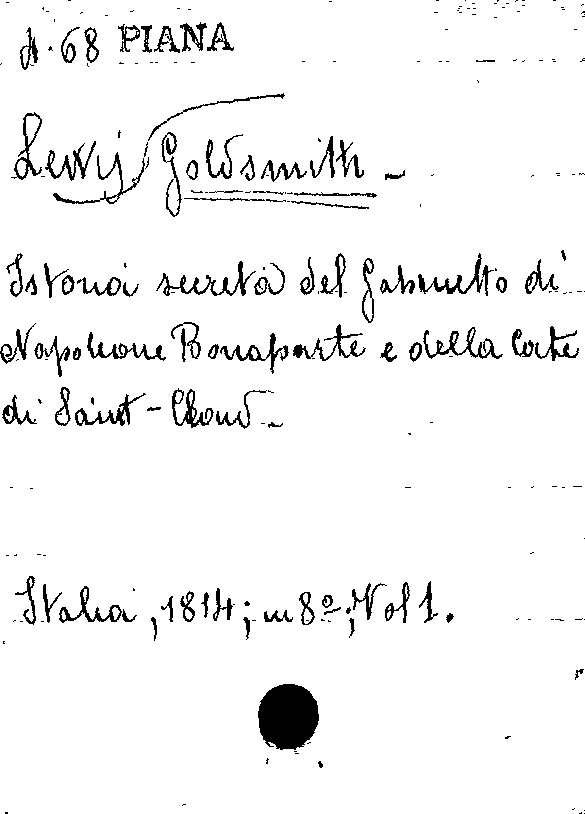 A. 68 PIANA
Lewis Goldsmith -
Istoria secreta del Gabinetto di
Napoleone Bonaparte e della Corte
di Saint-Cloud.
Italia, 1814; in 8º; Vol 1.